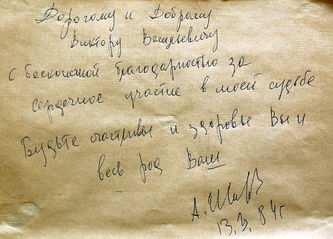 Дорогому и Доброму
Виктору Васильевичу
с бесконечной благодарностью за
сердечное участие в моей судьбе
Будьте счастливы и здоровы Вы и
весь род Ваш
А.
84г.